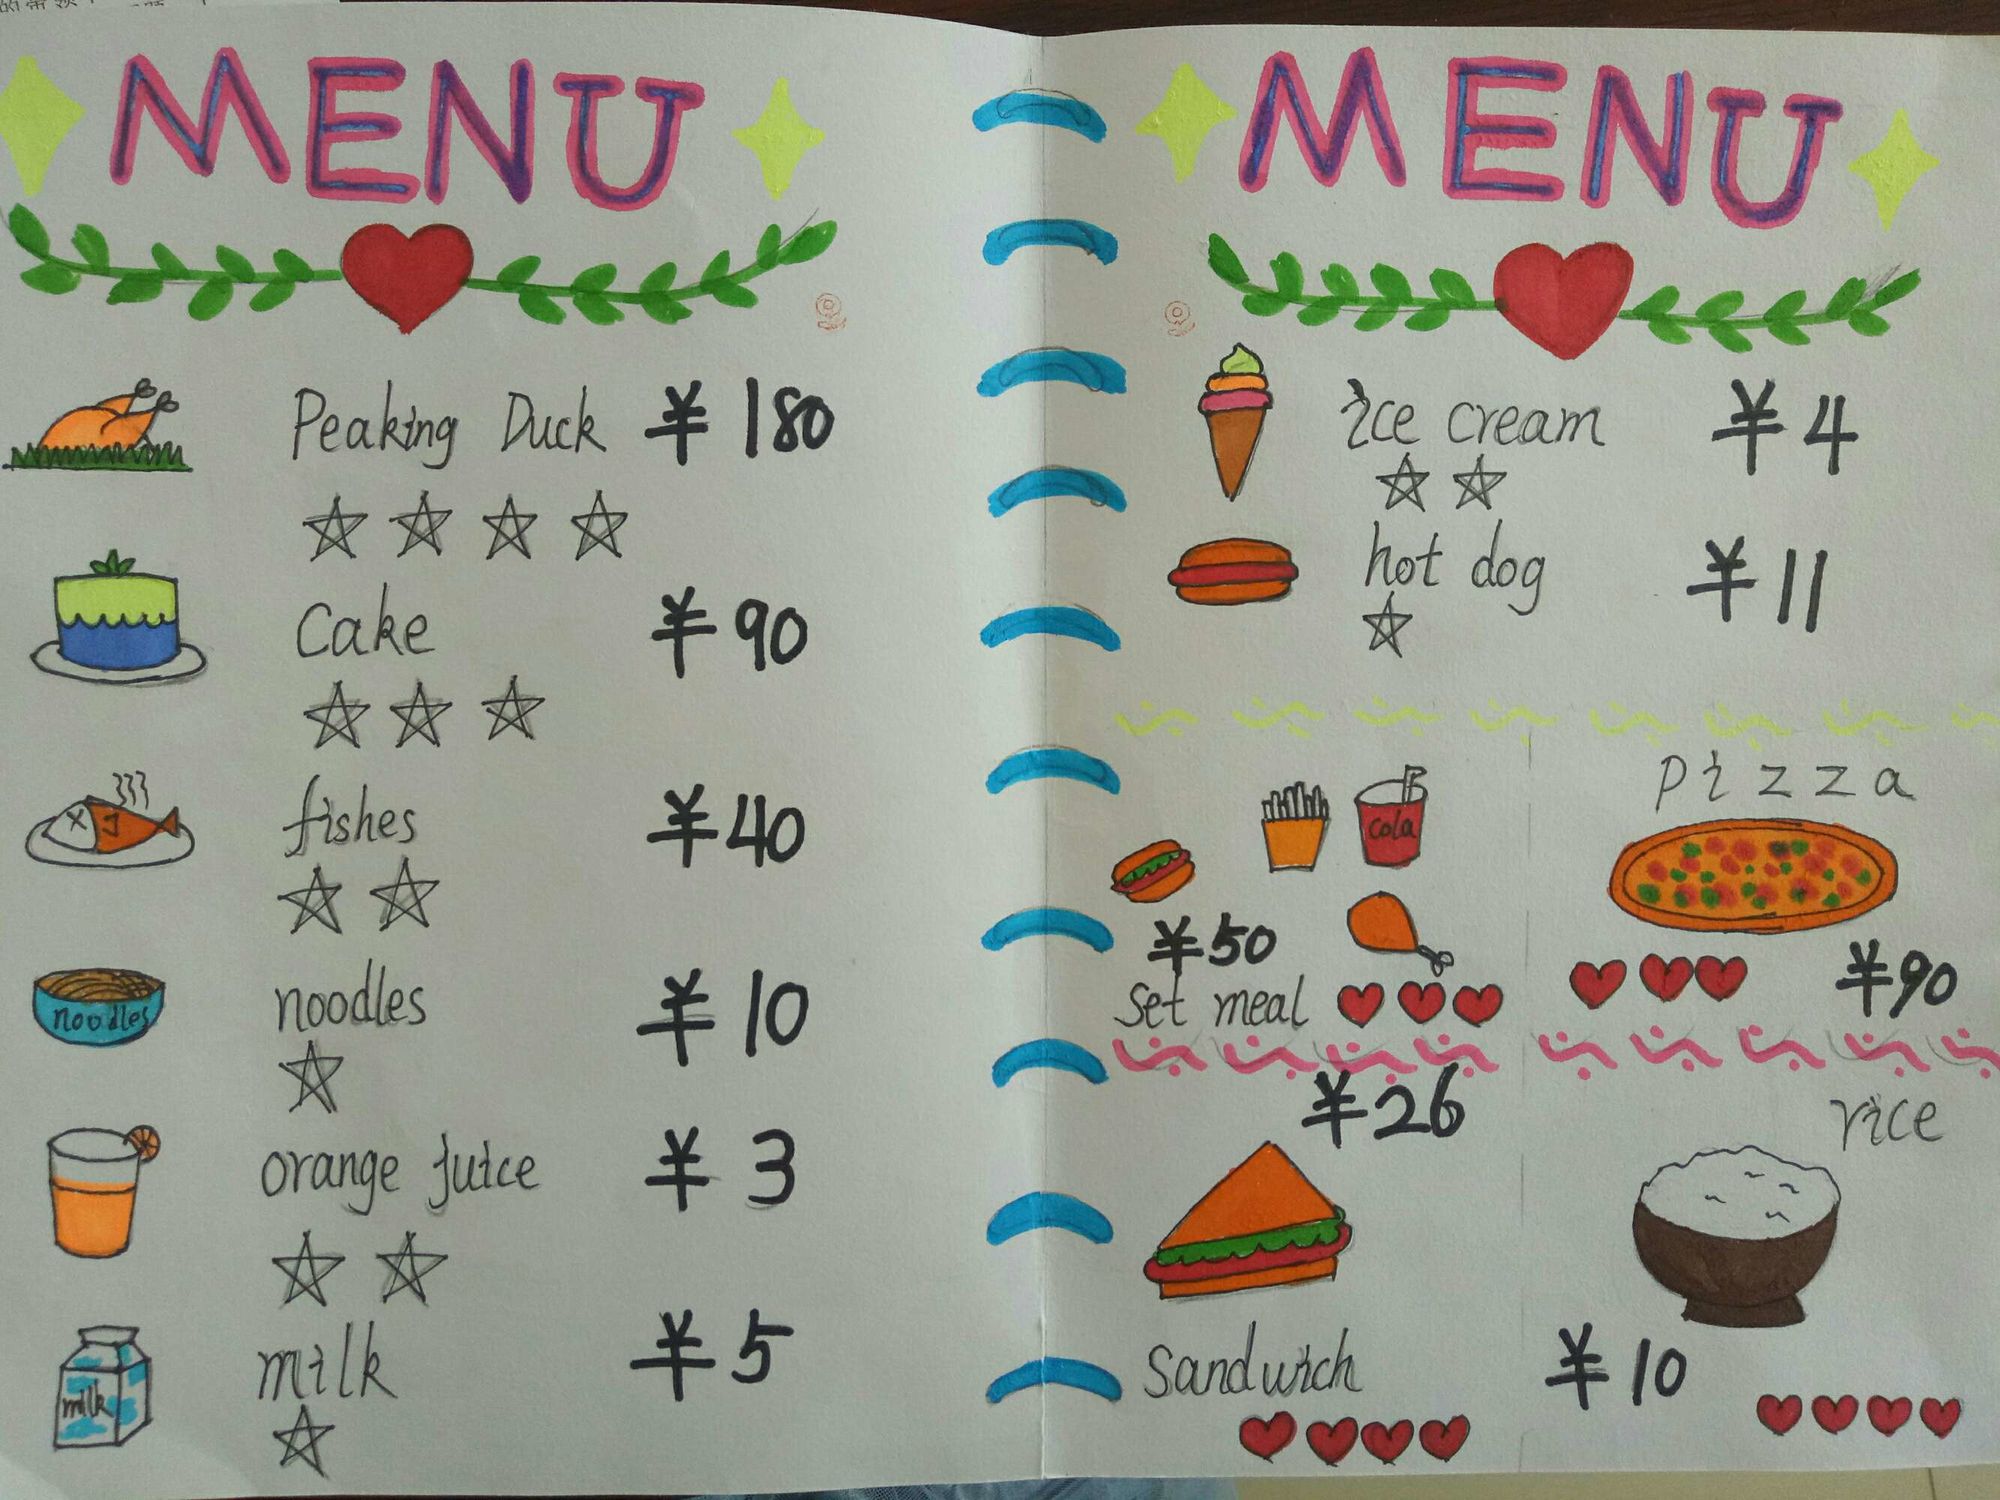 MENU
Peaking Duck ¥ 180
Cake ¥ 90
fishes ¥ 40
noodles ¥ 10
noodles
orange juice ¥ 3
milk ¥ 5
milk
MENU
ice cream ¥ 4
hot dog ¥ 11
cola
¥ 50
set meal
pizza
¥ 90
¥ 26
Sandwich
rice
¥ 10